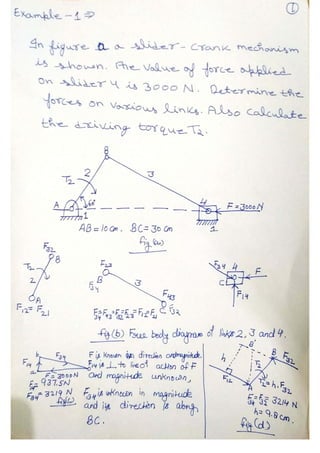 Example -1 ⇒
①
In figure a a slider - crank mechanism
is shown. The value of force applied
on slider 4 is 3000 N. Determine the
forces on various links. Also calculate
the driving torque T2.
B
2
3
T2
A
60°
4
F=3000N
1
1
AB = 10 cm. BC = 30 cm
fig (a)
F32
B
T2
2
A
F12= F21
F23
B
F34
3
F43
C
F34 4
F
C
F14
fig (b) Free body diagram of links 2, 3 and 4.
F34
F14
F = 3000N
F14= 937.5N
F34= 3219 N
fig (c)
F is known in direction and magnitude
F14 is ⊥ to line of action of F
and magnitude unknown,
F34 is unknown in magnitude
and its direction is along
BC.
B
F32
h
T2
F12
A
T2= h. F32
h= 9.8 cm.
fig (d)